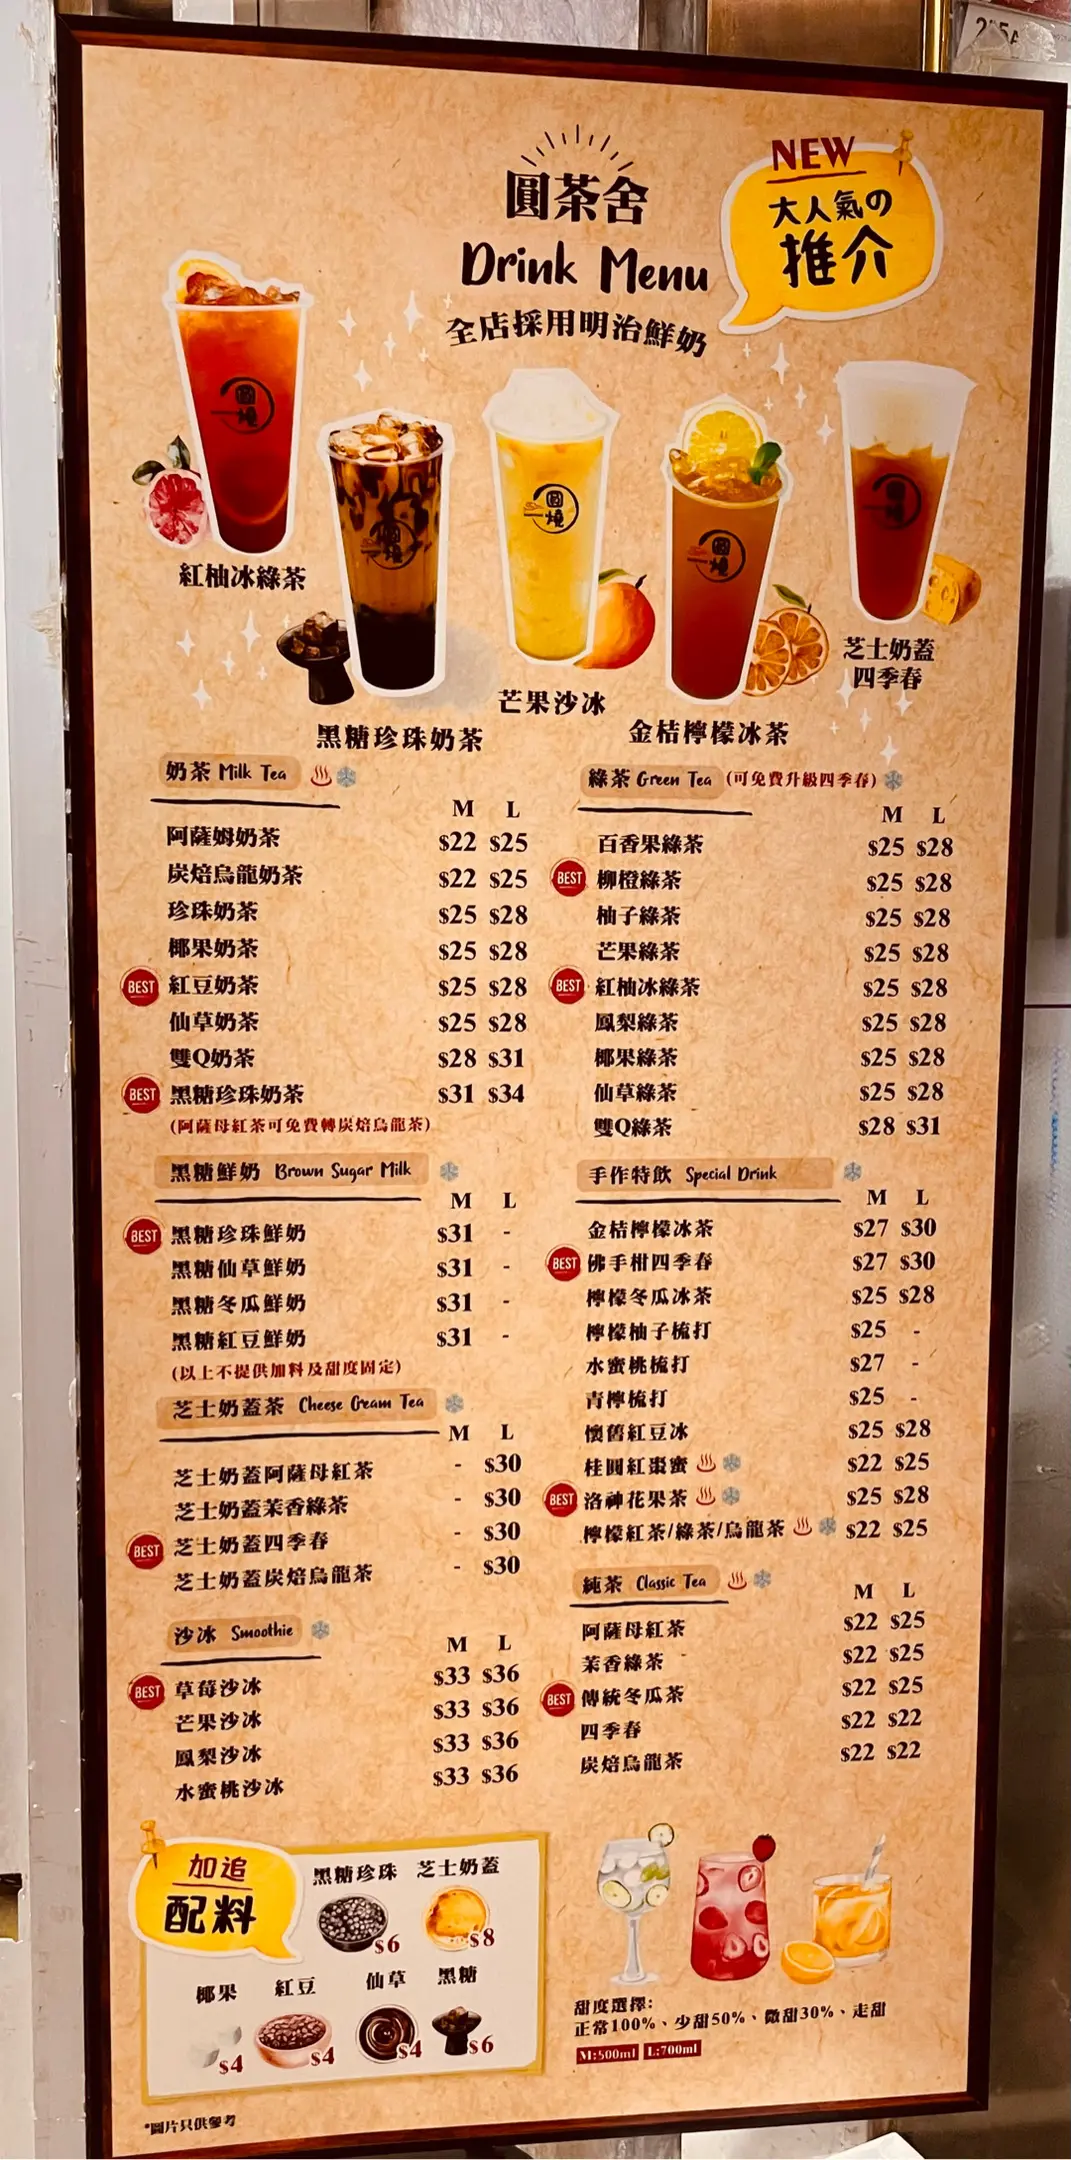 25A
圓茶舍
Drink Menu
全店採用明治鮮奶
NEW
大人氣の
推介
圓燒
圓燒
圓燒
圓燒
圓燒
紅柚冰綠茶
黑糖珍珠奶茶
芒果沙冰
金桔檸檬冰茶
芝士奶蓋
四季春
奶茶 Milk Tea
M L
阿薩姆奶茶 $22 $25
炭焙烏龍奶茶 $22 $25
珍珠奶茶 $25 $28
椰果奶茶 $25 $28
BEST 紅豆奶茶 $25 $28
仙草奶茶 $25 $28
雙Q奶茶 $28 $31
BEST 黑糖珍珠奶茶 $31 $34
(阿薩母紅茶可免費轉炭焙烏龍茶)
黑糖鮮奶 Brown Sugar Milk
M L
BEST 黑糖珍珠鮮奶 $31 -
黑糖仙草鮮奶 $31 -
黑糖冬瓜鮮奶 $31 -
黑糖紅豆鮮奶 $31 -
(以上不提供加料及甜度固定)
芝士奶蓋茶 Cheese Cream Tea
M L
芝士奶蓋阿薩母紅茶 - $30
芝士奶蓋茉香綠茶 - $30
BEST 芝士奶蓋四季春 - $30
芝士奶蓋炭焙烏龍茶 - $30
沙冰 Smoothie
M L
BEST 草莓沙冰 $33 $36
芒果沙冰 $33 $36
鳳梨沙冰 $33 $36
水蜜桃沙冰 $33 $36
綠茶 Green Tea (可免費升級四季春)
M L
百香果綠茶 $25 $28
BEST 柳橙綠茶 $25 $28
柚子綠茶 $25 $28
芒果綠茶 $25 $28
BEST 紅柚冰綠茶 $25 $28
鳳梨綠茶 $25 $28
椰果綠茶 $25 $28
仙草綠茶 $25 $28
雙Q綠茶 $28 $31
手作特飲 Special Drink
M L
金桔檸檬冰茶 $27 $30
BEST 佛手柑四季春 $27 $30
檸檬冬瓜冰茶 $25 $28
檸檬柚子梳打 $25 -
水蜜桃梳打 $27 -
青檸梳打 $25 -
懷舊紅豆冰 $25 $28
桂圓紅棗蜜 $22 $25
BEST 洛神花果茶 $25 $28
檸檬紅茶/綠茶/烏龍茶 $22 $25
純茶 Classic Tea
M L
阿薩母紅茶 $22 $25
茉香綠茶 $22 $25
BEST 傳統冬瓜茶 $22 $25
四季春 $22 $22
炭焙烏龍茶 $22 $22
加追
配料
黑糖珍珠 芝士奶蓋
$6 $8
椰果 紅豆 仙草 黑糖
$4 $4 $4 $6
甜度選擇:
正常100%、少甜50%、微甜30%、走甜
M:500ml L:700ml
*圖片只供參考